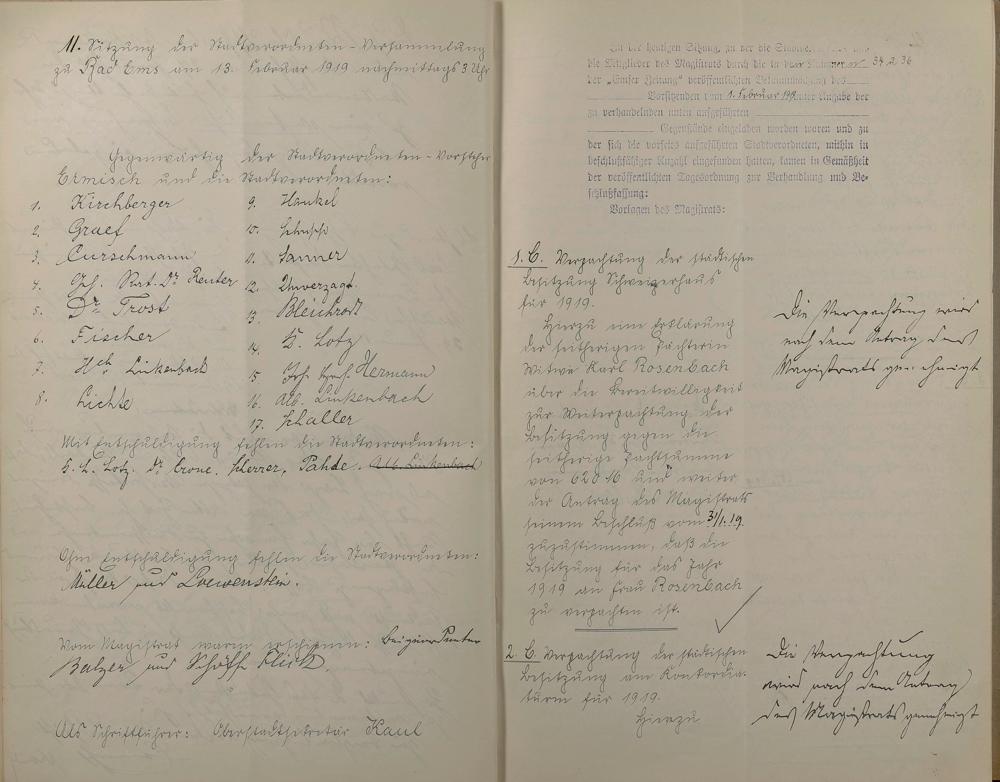 11. Sitzung der Stadtverordneten-Versammlung
zu Bad Ems am 13. Februar 1919 nachmittags 3 Uhr
Gegenwärtig der Stadtverordneten-Vorsteher
Ermisch und die Stadtverordneten:
1. Kirchberger
2. Graef
3. Curschmann
4. Geh. Rat. Dr. Reuter
5. Dr. Trost
6. Fischer
7. Hch. Linkenbach
8. Lichte
9. Hankel
10.
11. Sanner
12. Unverzagt
13. Bleichrodt
14. K. Lotz
15. Hermann
16. Alb. Linkenbach
17. Schaller
Mit Entschuldigung fehlen die Stadtverordneten:
Lotz. Dr. Crone. Scherrer. Pahde. Alb. Linkenbach
Ohne Entschuldigung fehlen die Stadtverordneten:
Müller und Loewenstein.
Vom Magistrat waren erschienen: Beigeordneter
Balzer und Schöffe Flick
Als Schriftführer: Oberstadtsekretär Kaul
In der heutigen Sitzung, zu der die Stadtverordneten und
die Mitglieder des Magistrats durch die in den Nummern 34 u. 36
der „Emser Zeitung" veröffentlichten Bekanntmachung des
Vorsitzenden vom 1. Februar 1919 unter Angabe der
zu verhandelnden unten aufgeführten
Gegenstände eingeladen worden waren und zu
der sich die vorseits aufgeführten Stadtverordneten, mithin in
beschlußfähiger Anzahl eingefunden hatten, kamen in Gemäßheit
der veröffentlichten Tagesordnung zur Verhandlung und Be-
schlußfassung:
Vorlagen des Magistrats:
1. C. Verpachtung der städtischen
Besitzung Schweizerhaus
für 1919.
Hierzu eine Erklärung
der seitherigen Pächterin
Witwe Karl Rosenbach
über die Bereitwilligkeit
zur Weiterpachtung der
Besitzung gegen die
seitherige Pachtsumme
von 620 M und weiter
der Antrag des Magistrats
seinem Beschluß vom 31/1. 19.
zuzustimmen, daß die
Besitzung für das Jahr
1919 an Frau Rosenbach
zu verpachten ist.
Die Verpachtung wird
nach dem Antrag des
Magistrats genehmigt
2. C. Verpachtung der städtischen
Besitzung am Konkordia-
turm für 1919.
Hierzu
Die Verpachtung
wird nach dem Antrag
des Magistrats genehmigt